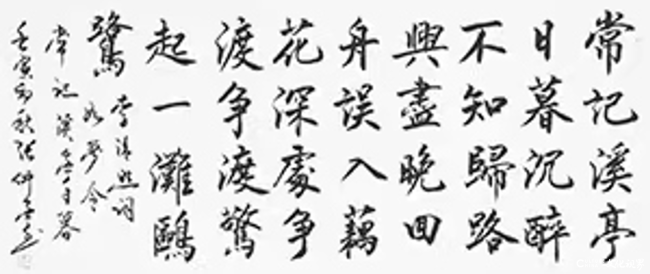 常記溪亭
日暮沉醉
不知歸路
興盡晚回
舟誤入藕
花深處争
渡争渡驚
起一灘鷗
鷺
李清照詞
如夢令
常記溪亭日暮
壬寅初秋張仲亭